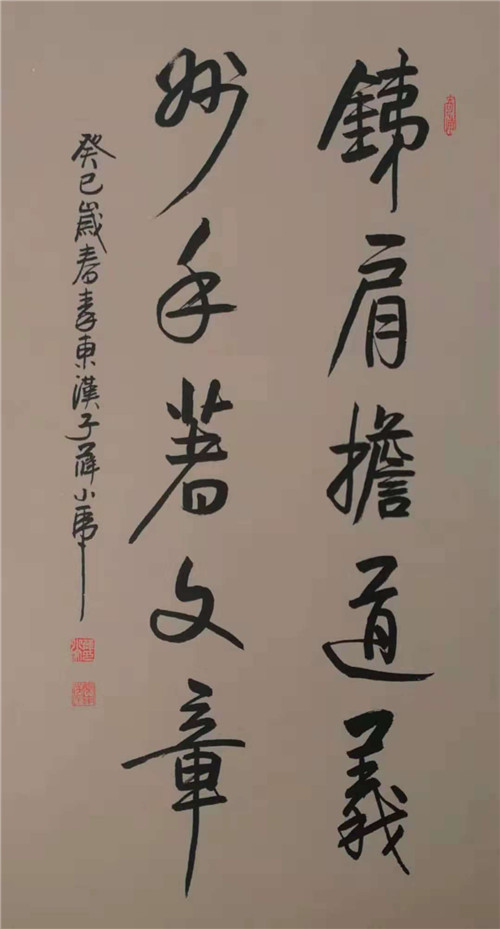 銕肩擔道義
妙手著文章
癸巳歲春秦東漢子薛小虎